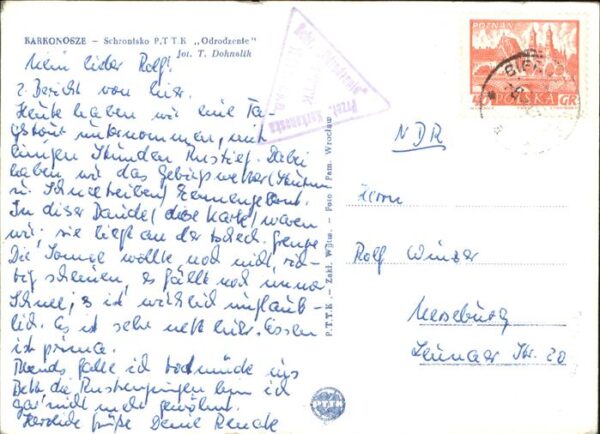 KARKONOSZE – Schronisko P.T.T.K. „Odrodzenie"
fot. T. Dohnalik
Mein lieber Rolf!
2. Bericht von hier.
Heute haben wir eine Ta-
gestour unternommen, mit
einigen Stunden Aufstieg. Dabei
haben wir das Gebirgswetter (Sturm
u. Schneetreiben) kennengelernt.
In dieser Baude (diese Karte) waren
wir, sie liegt an der tschech. Grenze.
Die Sonne wollte noch nicht rich-
tig scheinen, es fällt noch immer
Schnee; es ist wirklich unglaub-
lich. Es ist sehr nett hier. Essen
ist prima.
Abends falle ich todmüde ins
Bett. Die Anstrengungen bin ich
gar nicht mehr gewöhnt.
Herzliche Grüße Deine Renate
P.T.T.K. – Zakł. Wytw. – Foto Pam. Wrocław
POZNAŃ
40 POLSKA GR
NDR
Herrn
Rolf Winzer
Merseburg
Leunaer Str. 20
Przeł. Karkonoska
PTTK